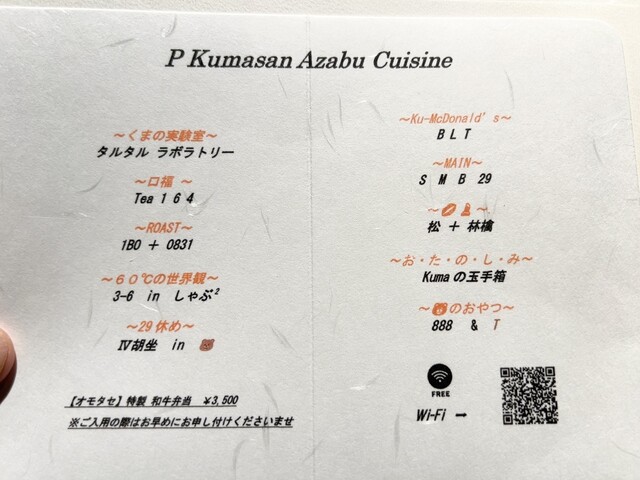 P Kumasan Azabu Cuisine
～くまの実験室～
タルタル ラボラトリー
～口福 ～
Tea 1 6 4
～ROAST～
1BO ＋ 0831
～６０℃の世界観～
3-6 in しゃぶ²
～29 休め～
Ⅳ胡坐 in 🐻
【オモタセ】特製 和牛弁当 ¥3,500
※ご入用の際はお早めにお申し付けくださいませ
～Ku-McDonald's～
B L T
～MAIN～
S M B 29
～ ～
松 ＋ 林檎
～お・た・の・し・み～
Kuma の玉手箱
～🐻のおやつ～
888 & T
FREE
Wi-Fi →